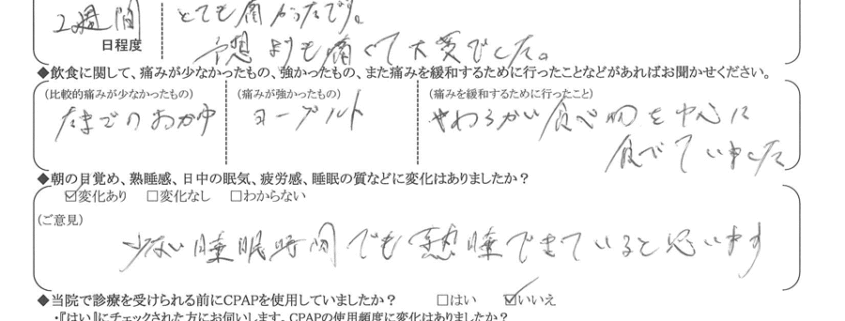 とても痛かったです。
2週間
日程度
予想よりも痛くて大変でした。
◆飲食に関して、痛みが少なかったもの、強かったもの、また痛みを緩和するために行ったことなどがあればお聞かせください。
(比較的痛みが少なかったもの) (痛みが強かったもの) (痛みを緩和するために行ったこと)
たまごのおかゆ ヨーグルト やわらかい食べ物を中心に
食べていました
◆朝の目覚め、熟睡感、日中の眠気、疲労感、睡眠の質などに変化はありましたか？
☑変化あり □変化なし □わからない
(ご意見)
少ない睡眠時間でも熟睡できていると思います
◆当院で診療を受けられる前にCPAPを使用していましたか？ □はい ☑いいえ
・『はい』にチェックされた方にお伺いします。CPAPの使用頻度に変化はありましたか？